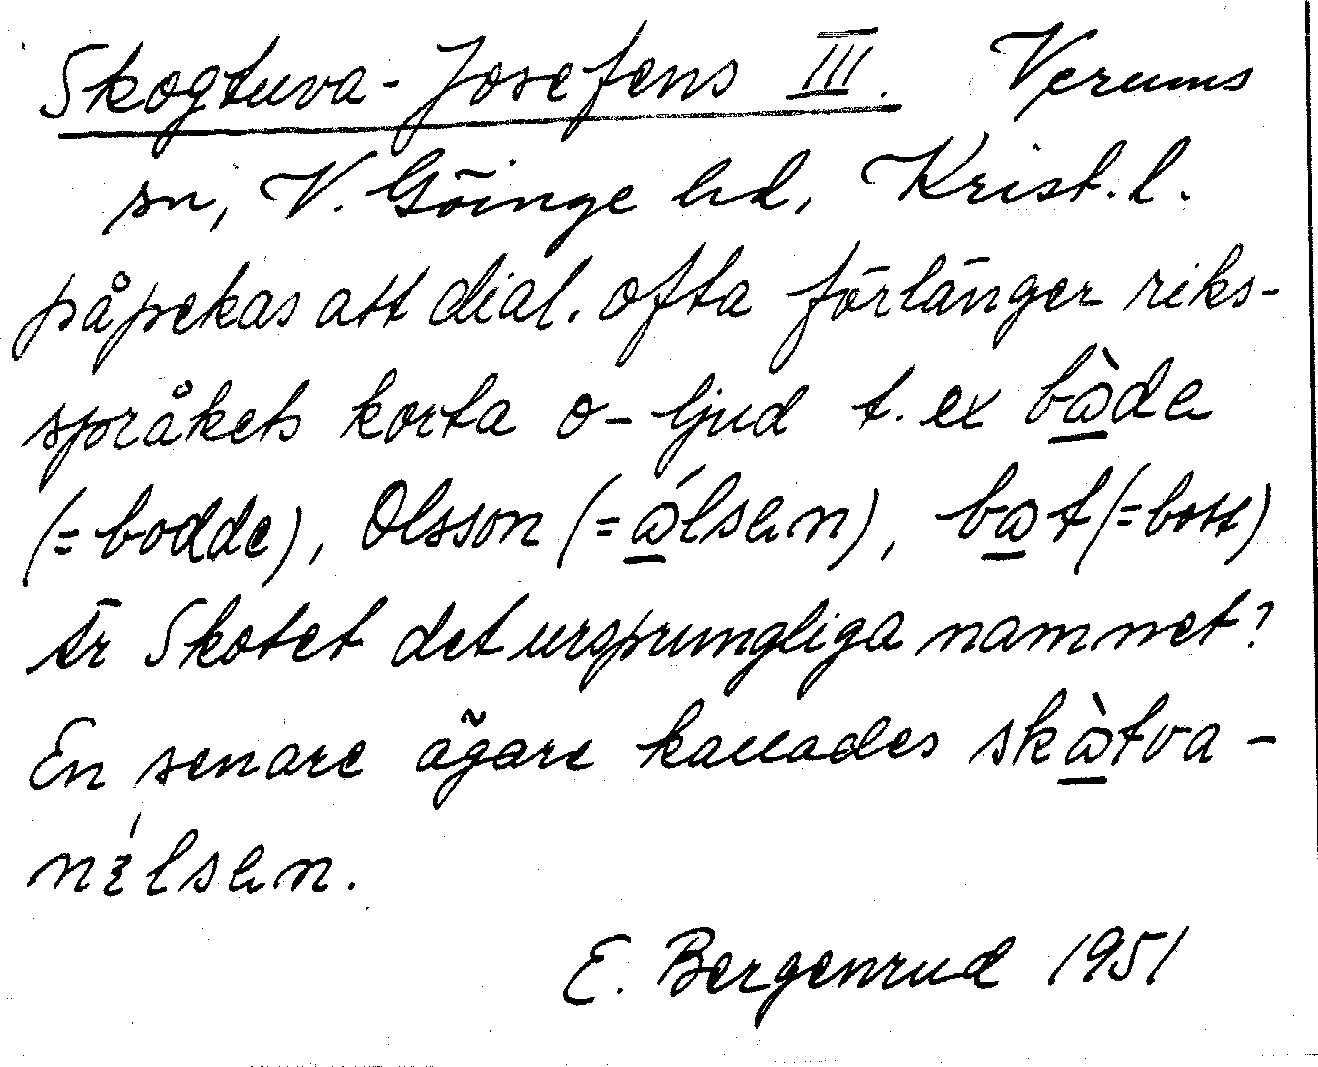 Skogtuva-Josefens III. Verums
sn, V. Göinge hd, Krist.l.
påpekas att dial. ofta förlänger riks-
språkets korta o-ljud t. ex bàde
(= bodde), Olsson (= álsen), bat (= bott)
Är Skotet det ursprungliga namnet?
En senare ägare kallades skàtva-
nélsen.
E. Bergenrud 1951